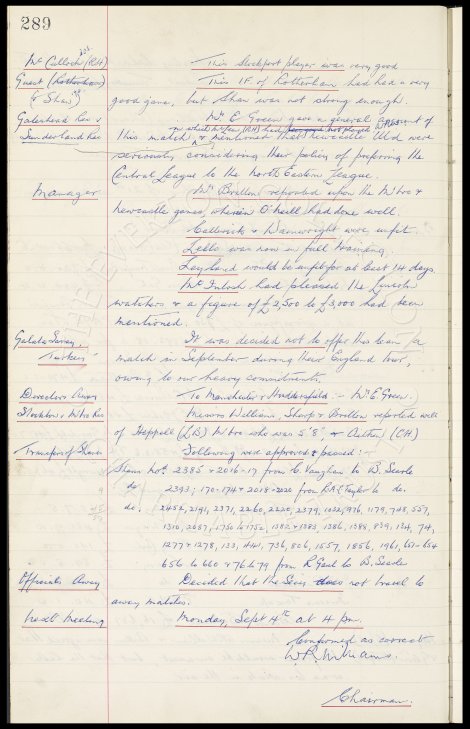 289
Mc Culloch (RH) This Stockport player was very good
Guest (Rotherham) This IF of Rotherham had had a very
(& Shaw) good game, but Shaw was not strong enough.
Gateshead Res v Mr E Green gave a general report of
Sunderland Res this match & mentioned that Newcastle Utd were
seriously considering their policy of preferring the
Central League to the North Eastern League.
Manager Mr Brolton reported upon the M'bro &
Newcastle games, wherein O'Neill had done well.
Calverick & Wainwright were unfit.
Lello was now in full training.
Leyland would be unfit for at least 14 days.
McIntosh had pleased the Lincoln
watchers & a figure of £2,500 to £3,000 had been
mentioned.
Galata Saray, It was decided not to offer this team a
Turkey match in September during their England tour,
owing to our heavy commitments.
Directors Away To Manchester & Huddersfield :- Mr E. Green.
Stockton v M'bro Res Messrs Williams, Sharp & Brolton reported well
of Heppell (LB) M'bro who was 5'8" &
(CH)
Transfer of Shares Following were approved & passed :-
Shares Nos. 2385 & 2016-17 from C. Vaughan to B. Searle
do 2393; 170-174 & 2018-2020 from Taylor to do.
do. 2452, 2191, 2371, 2260, 2220, 2379, 1032, 976, 1179, 748, 557,
1310, 2087, 1750 to 1752, 1382 & 1383, 1386, 1388, 839, 134, 74,
1277 & 1278, 133, 1441, 736, 806, 1557, 1856, 1961, 651-654
656 to 660 & 676 & 79 from R Gaul to B. Searle
Officials Away Decided that the Secy does not travel to
away matches.
Next Meeting Monday, Sept 4th at 4 pm.
Confirmed as correct
W R Williams.
Chairman.